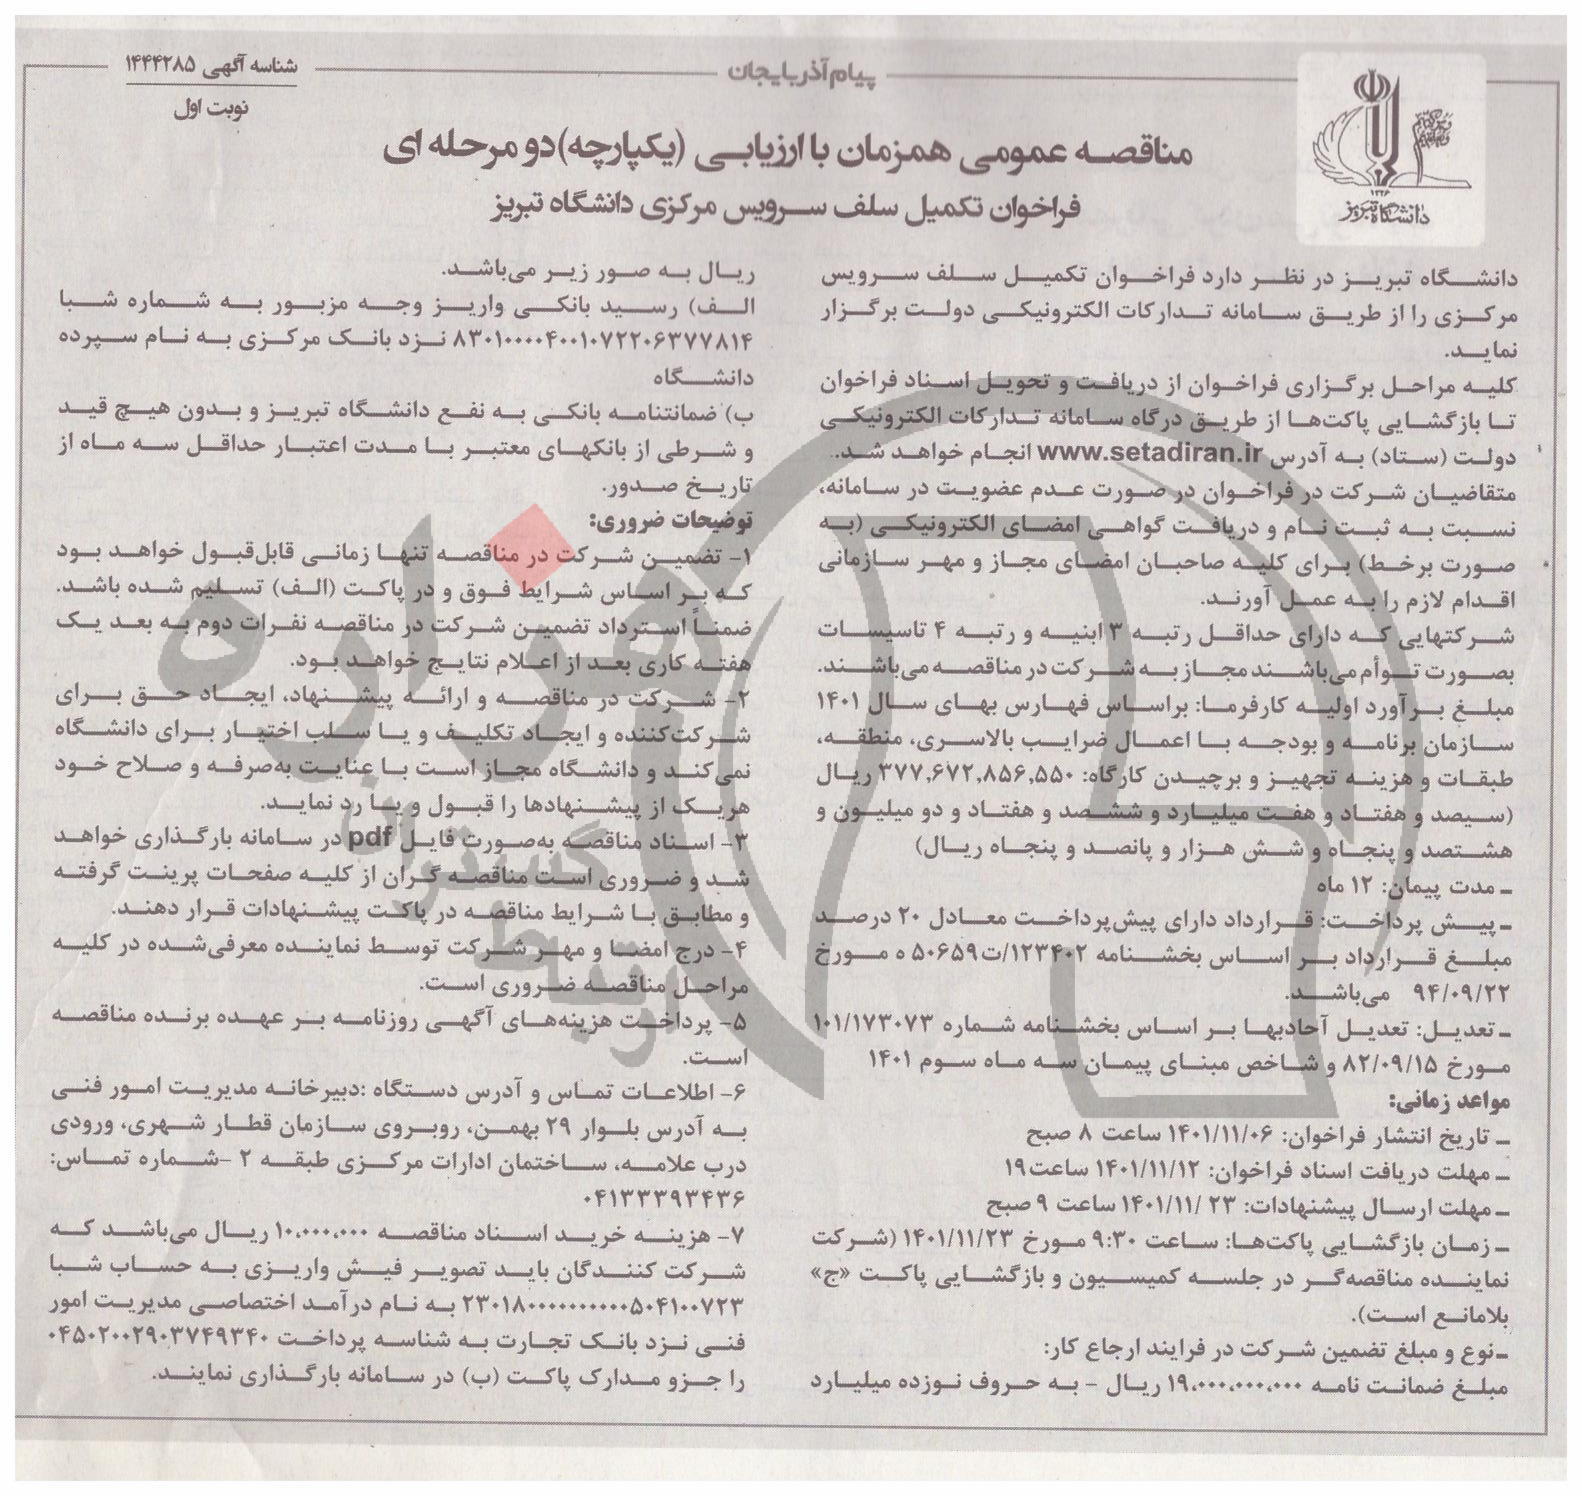 پیام آذربایجان
شناسه آگهی ۱۴۴۴۲۸۵
نوبت اول
۱۳۲۶
دانشگاه تبریز
مناقصه عمومی همزمان با ارزیابی (یکپارچه)دو مرحله ای
فراخوان تکمیل سلف سرویس مرکزی دانشگاه تبریز
دانشگاه تبریز در نظر دارد فراخوان تکمیل سلف سرویس
مرکزی را از طریق سامانه تدارکات الکترونیکی دولت برگزار
نماید.
کلیه مراحل برگزاری فراخوان از دریافت و تحویل اسناد فراخوان
تا بازگشایی پاکت‌ها از طریق درگاه سامانه تدارکات الکترونیکی
دولت (ستاد) به آدرس www.setadiran.ir انجام خواهد شد..
متقاضیان شرکت در فراخوان در صورت عدم عضویت در سامانه،
نسبت به ثبت نام و دریافت گواهی امضای الکترونیکی (به
صورت برخط) برای کلیه صاحبان امضای مجاز و مهر سازمانی
اقدام لازم را به عمل آورند.
شرکتهایی که دارای حداقل رتبه ۳ ابنیه و رتبه ۴ تاسیسات
بصورت توأم می‌باشند مجاز به شرکت در مناقصه می‌باشند.
مبلغ برآورد اولیه کارفرما: براساس فهارس بهای سال ۱۴۰۱
سازمان برنامه و بودجه با اعمال ضرایب بالاسری، منطقه،
طبقات و هزینه تجهیز و برچیدن کارگاه: ۳۷۷,۶۷۲,۸۵۶,۵۵۰ ریال
(سیصد و هفتاد و هفت میلیارد و ششصد و هفتاد و دو میلیون و
هشتصد و پنجاه و شش هزار و پانصد و پنجاه ریال)
ـ مدت پیمان: ۱۲ ماه
ـ پیش پرداخت: قرارداد دارای پیش‌پرداخت معادل ۲۰ درصد
مبلغ قرارداد بر اساس بخشنامه ۱۲۳۴۰۲/ت۵۰۶۵۹ ه مورخ
۹۴/۰۹/۲۲ می‌باشد.
ـ تعدیل: تعدیل آحادبها بر اساس بخشنامه شماره ۱۰۱/۱۷۳۰۷۳
مورخ ۸۲/۰۹/۱۵ و شاخص مبنای پیمان سه ماه سوم ۱۴۰۱
مواعد زمانی:
ـ تاریخ انتشار فراخوان: ۱۴۰۱/۱۱/۰۶ ساعت ۸ صبح
ـ مهلت دریافت اسناد فراخوان: ۱۴۰۱/۱۱/۱۲ ساعت۱۹
ـ مهلت ارسال پیشنهادات: ۲۳ /۱۴۰۱/۱۱ ساعت ۹ صبح
ـ زمان بازگشایی پاکت‌ها: ساعت ۹:۳۰ مورخ ۱۴۰۱/۱۱/۲۳ (شرکت
نماینده مناقصه‌گر در جلسه کمیسیون و بازگشایی پاکت «ج»
بلامانع است).
ـ نوع و مبلغ تضمین شرکت در فرایند ارجاع کار:
مبلغ ضمانت نامه ۱۹,۰۰۰,۰۰۰,۰۰۰ ریال – به حروف نوزده میلیارد
ریال به صور زیر می‌باشد.
الف) رسید بانکی واریز وجه مزبور به شماره شبا
۸۳۰۱۰۰۰۰۴۰۰۱۰۷۲۲۰۶۳۷۷۸۱۴ نزد بانک مرکزی به نام سپرده
دانشگاه
ب) ضمانتنامه بانکی به نفع دانشگاه تبریز و بدون هیچ قید
و شرطی از بانکهای معتبر با مدت اعتبار حداقل سه ماه از
تاریخ صدور.
توضیحات ضروری:
۱- تضمین شرکت در مناقصه تنها زمانی قابل‌قبول خواهد بود
که بر اساس شرایط فوق و در پاکت (الف) تسلیم شده باشد.
ضمناً استرداد تضمین شرکت در مناقصه نفرات دوم به بعد یک
هفته کاری بعد از اعلام نتایج خواهد بود.
۲- شرکت در مناقصه و ارائه پیشنهاد، ایجاد حق برای
شرکت‌کننده و ایجاد تکلیف و یا سلب اختیار برای دانشگاه
نمی‌کند و دانشگاه مجاز است با عنایت به‌صرفه و صلاح خود
هریک از پیشنهادها را قبول و یا رد نماید.
۳- اسناد مناقصه به‌صورت فایل pdf در سامانه بارگذاری خواهد
شد و ضروری است مناقصه گران از کلیه صفحات پرینت گرفته
و مطابق با شرایط مناقصه در پاکت پیشنهادات قرار دهند.
۴- درج امضا و مهر شرکت توسط نماینده معرفی‌شده در کلیه
مراحل مناقصه ضروری است.
۵- پرداخت هزینه‌های آگهی روزنامه بر عهده برنده مناقصه
است.
۶- اطلاعات تماس و آدرس دستگاه :دبیرخانه مدیریت امور فنی
به آدرس بلوار ۲۹ بهمن، روبروی سازمان قطار شهری، ورودی
درب علامه، ساختمان ادارات مرکزی طبقه ۲ –شماره تماس:
۰۴۱۳۳۳۹۳۴۳۶
۷- هزینه خرید اسناد مناقصه ۱۰,۰۰۰,۰۰۰ ریال می‌باشد که
شرکت کنندگان باید تصویر فیش واریزی به حساب شبا
۲۳۰۱۸۰۰۰۰۰۰۰۰۰۰۵۰۴۱۰۰۷۲۳ به نام درآمد اختصاصی مدیریت امور
فنی نزد بانک تجارت به شناسه پرداخت ۰۴۵۰۲۰۰۲۹۰۳۷۴۹۳۴۰
را جزو مدارک پاکت (ب) در سامانه بارگذاری نمایند.